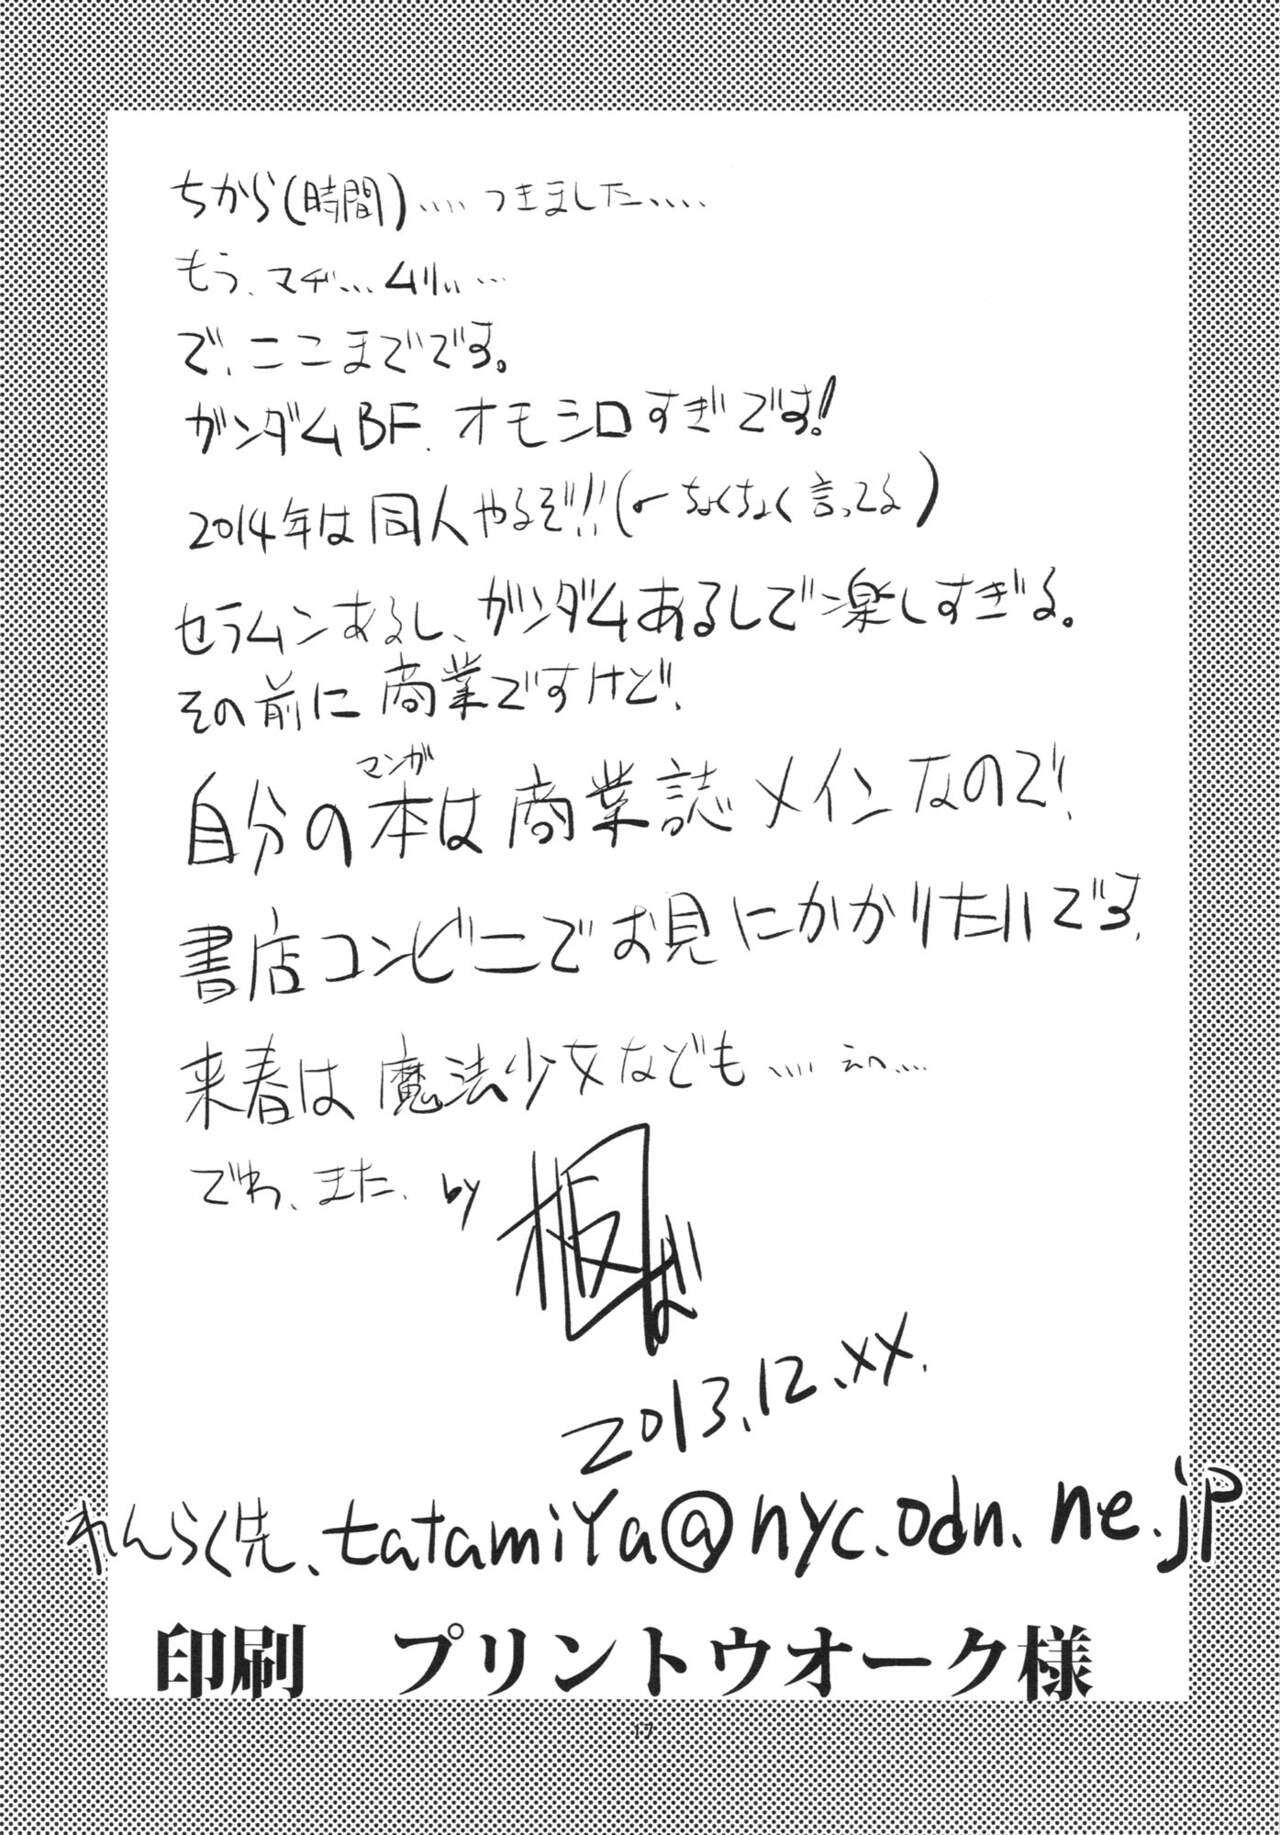 ちから(時間)‥‥つきました‥‥
もう、マヂ…ムリぃ…
で、ここまでです。
ガンダムBF. オモシロすぎです!
2014年は同人やるぞ!!(←ちょくちょく言ってる)
セラムンあるし、ガンダムあるしで楽しすぎる。
その前に商業ですけど!
マンガ
自分の本は商業誌メインなので!
書店コンビニでお見にかかりたいです.
来春は魔法少女なども‥‥えへ‥‥
でわ、また. by 板ば
2013.12.XX.
れんらく先、tatamiYa@nyc.odn.ne.jp
印刷　プリントウオーク様
17